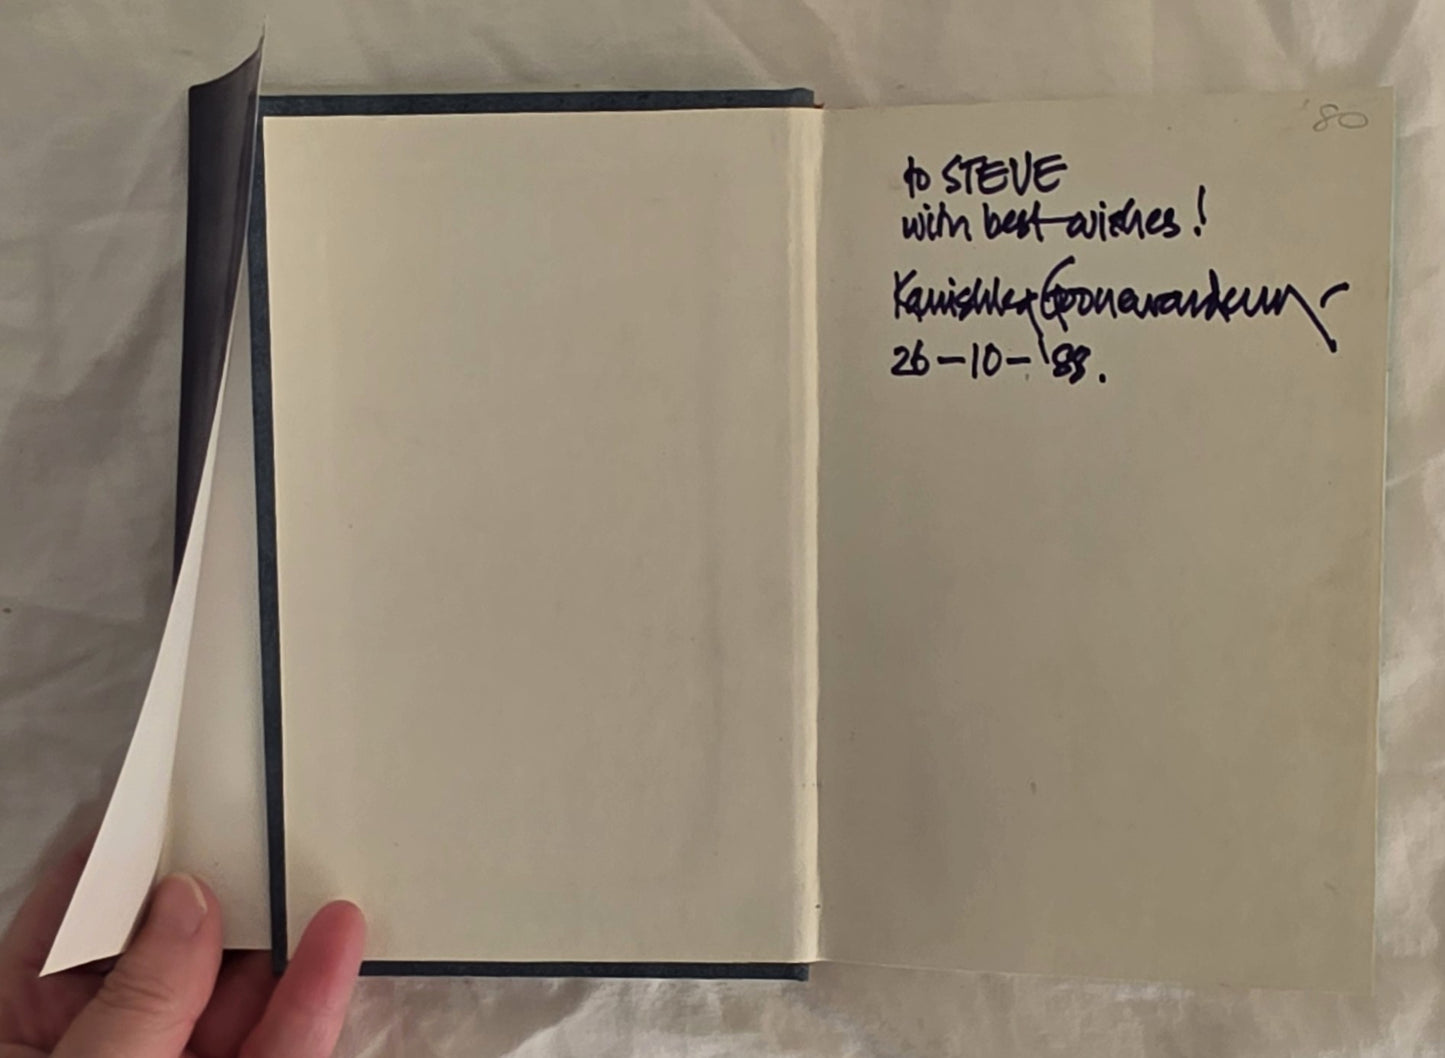 '80
to STEVE
with best wishes!
Kanishka Goonewardena
26-10-'88.